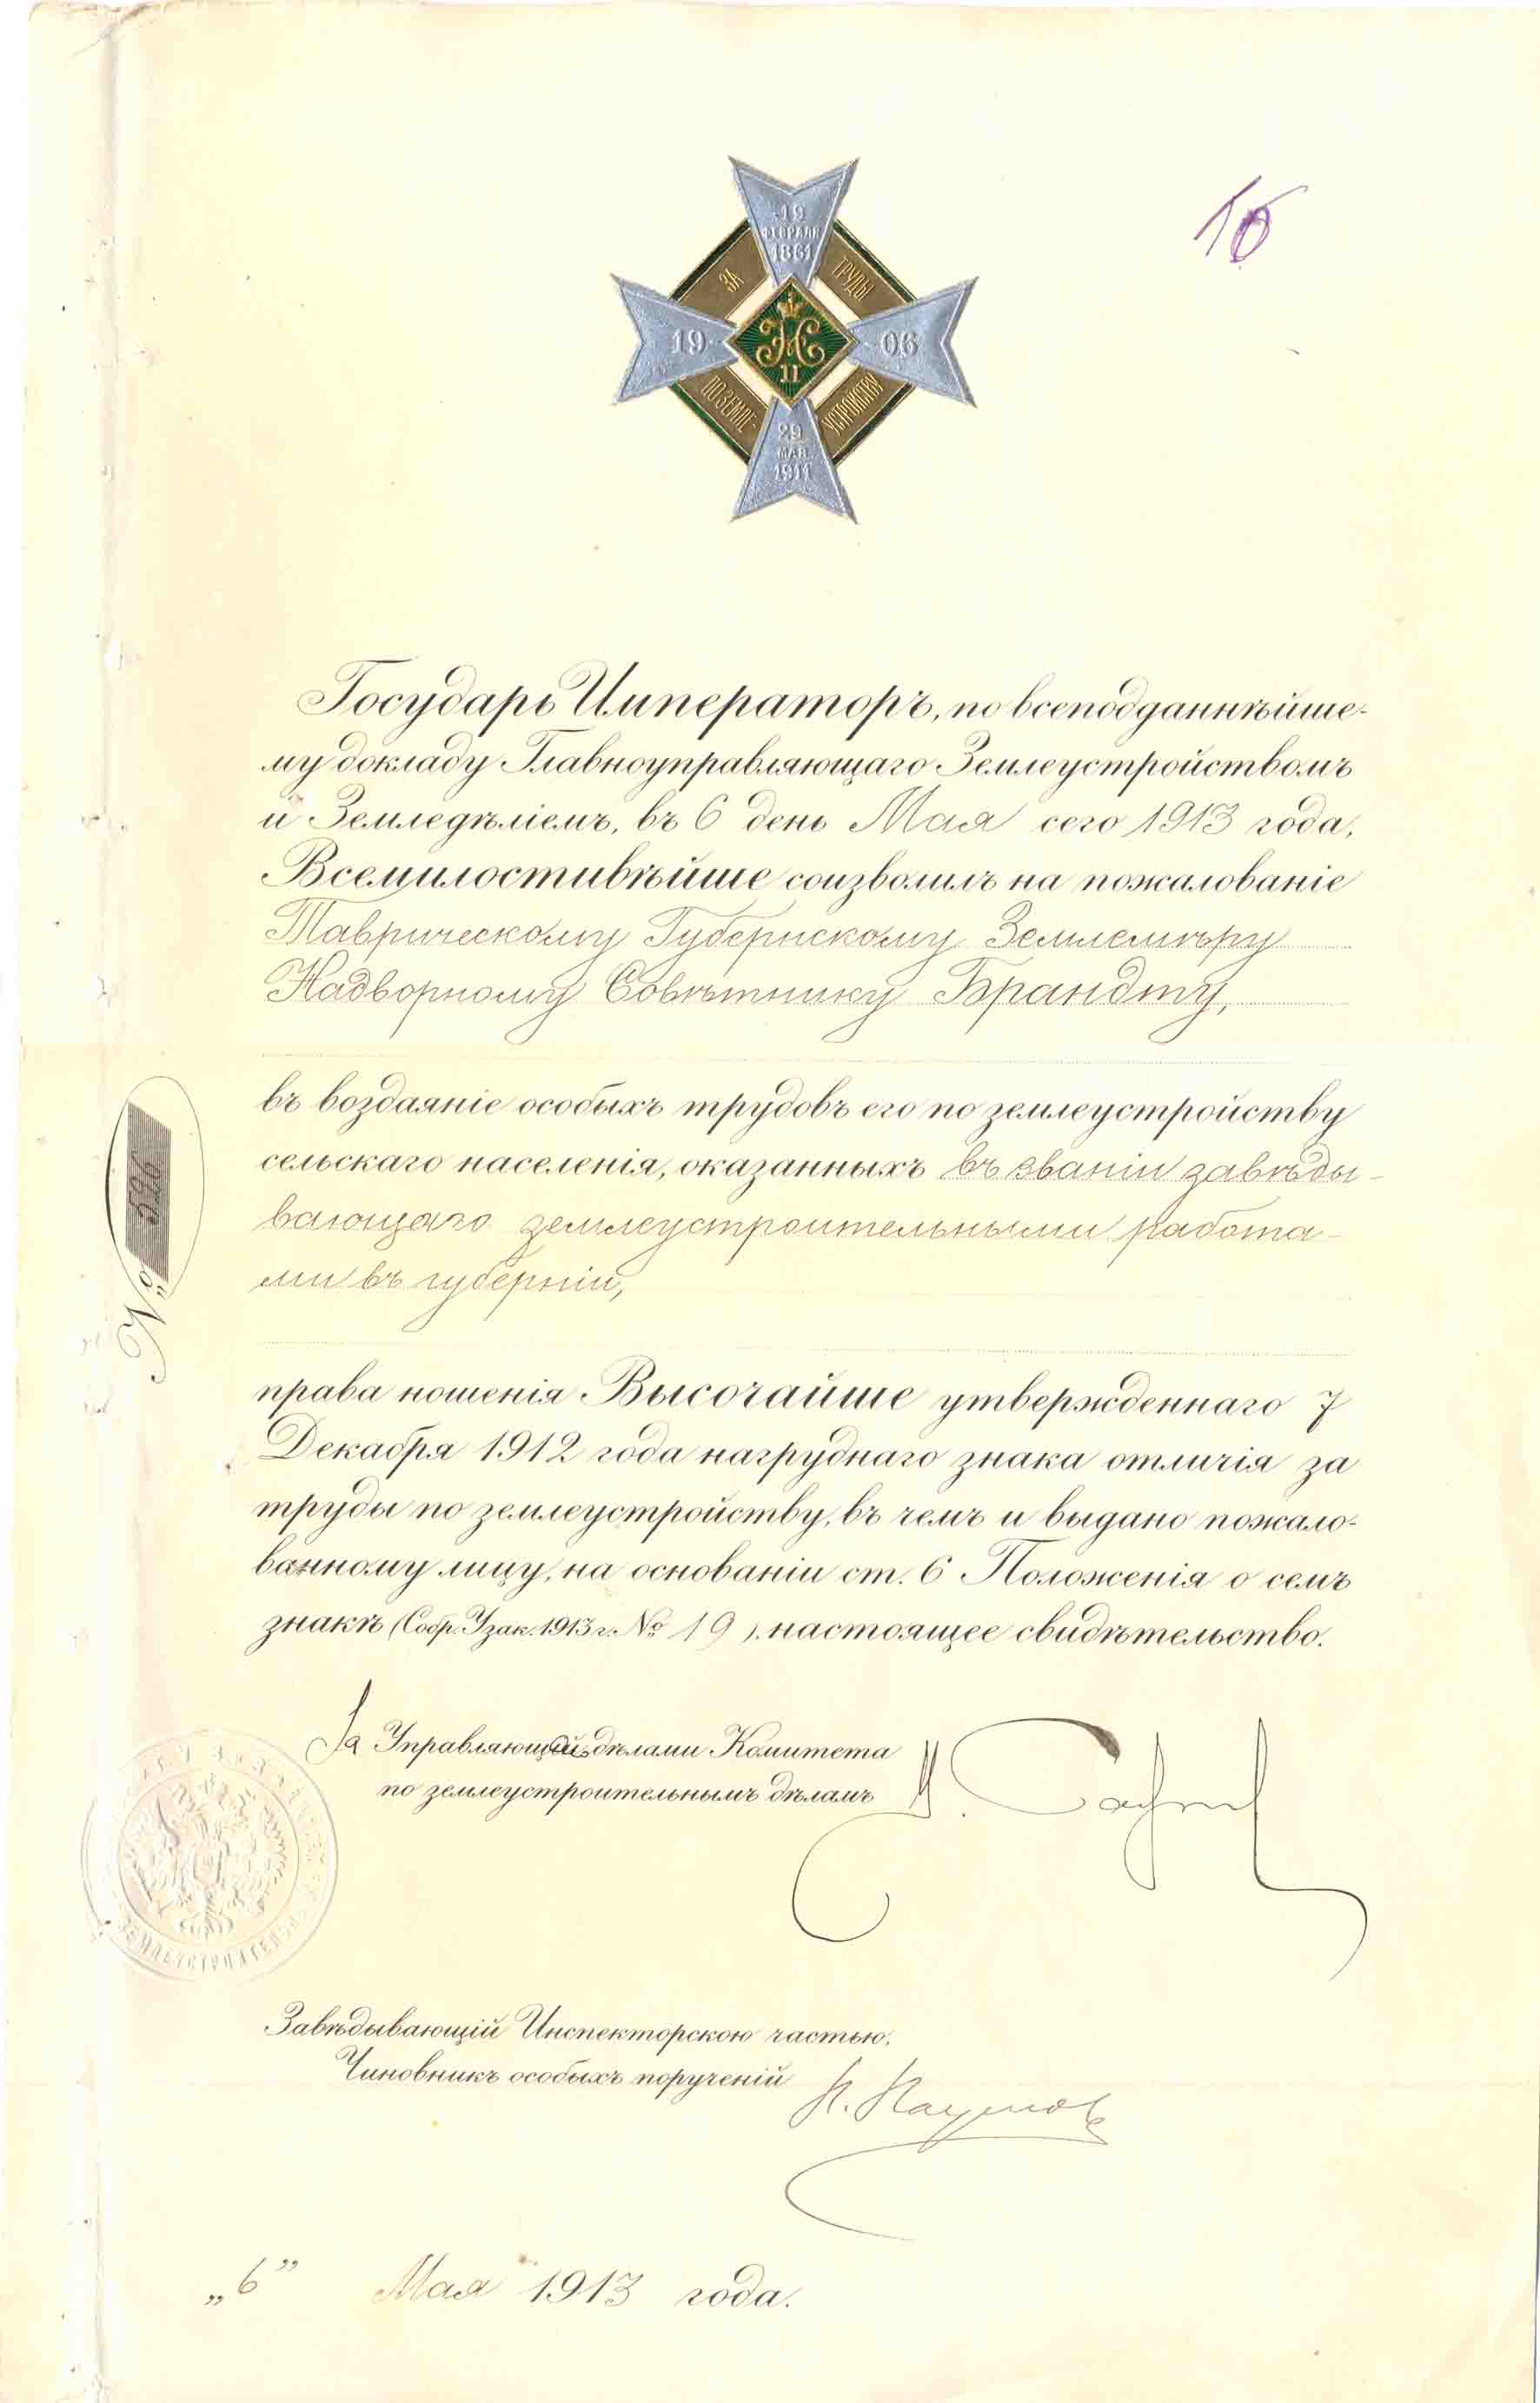 16
19
ФЕВРАЛЯ
1861
ЗА ТРУДЫ
19 II 06
ПО ЗЕМЛЕ- УСТРОЙСТВУ
29
МАЯ
1911
Государь Императоръ, по всеподданнѣйше-
му докладу Главноуправляющаго Землеустройствомъ
и Земледѣліемъ, въ 6 день Мая сего 1913 года,
Всемилостивѣйше соизволилъ на пожалованіе
Таврическому Губернскому Землемѣру
Надворному Совѣтнику Брандту,
въ воздаяніе особыхъ трудовъ его по землеустройству
сельскаго населенія, оказанныхъ въ званіи завѣды-
вающаго землеустроительными работа-
ми въ губерніи,
№ 526
права ношенія Высочайше утвержденнаго 7
Декабря 1912 года нагруднаго знака отличія за
труды по землеустройству, въ чемъ и выдано пожало-
ванному лицу, на основаніи ст. 6 Положенія о семъ
знакѣ (Собр. Узак. 1913 г. № 19), настоящее свидѣтельство.
За Управляющій дѣлами Комитета
по землеустроительнымъ дѣламъ
Завѣдывающій Инспекторскою частью,
Чиновникъ особыхъ порученій Н. Наумов
„6” Мая 1913 года.